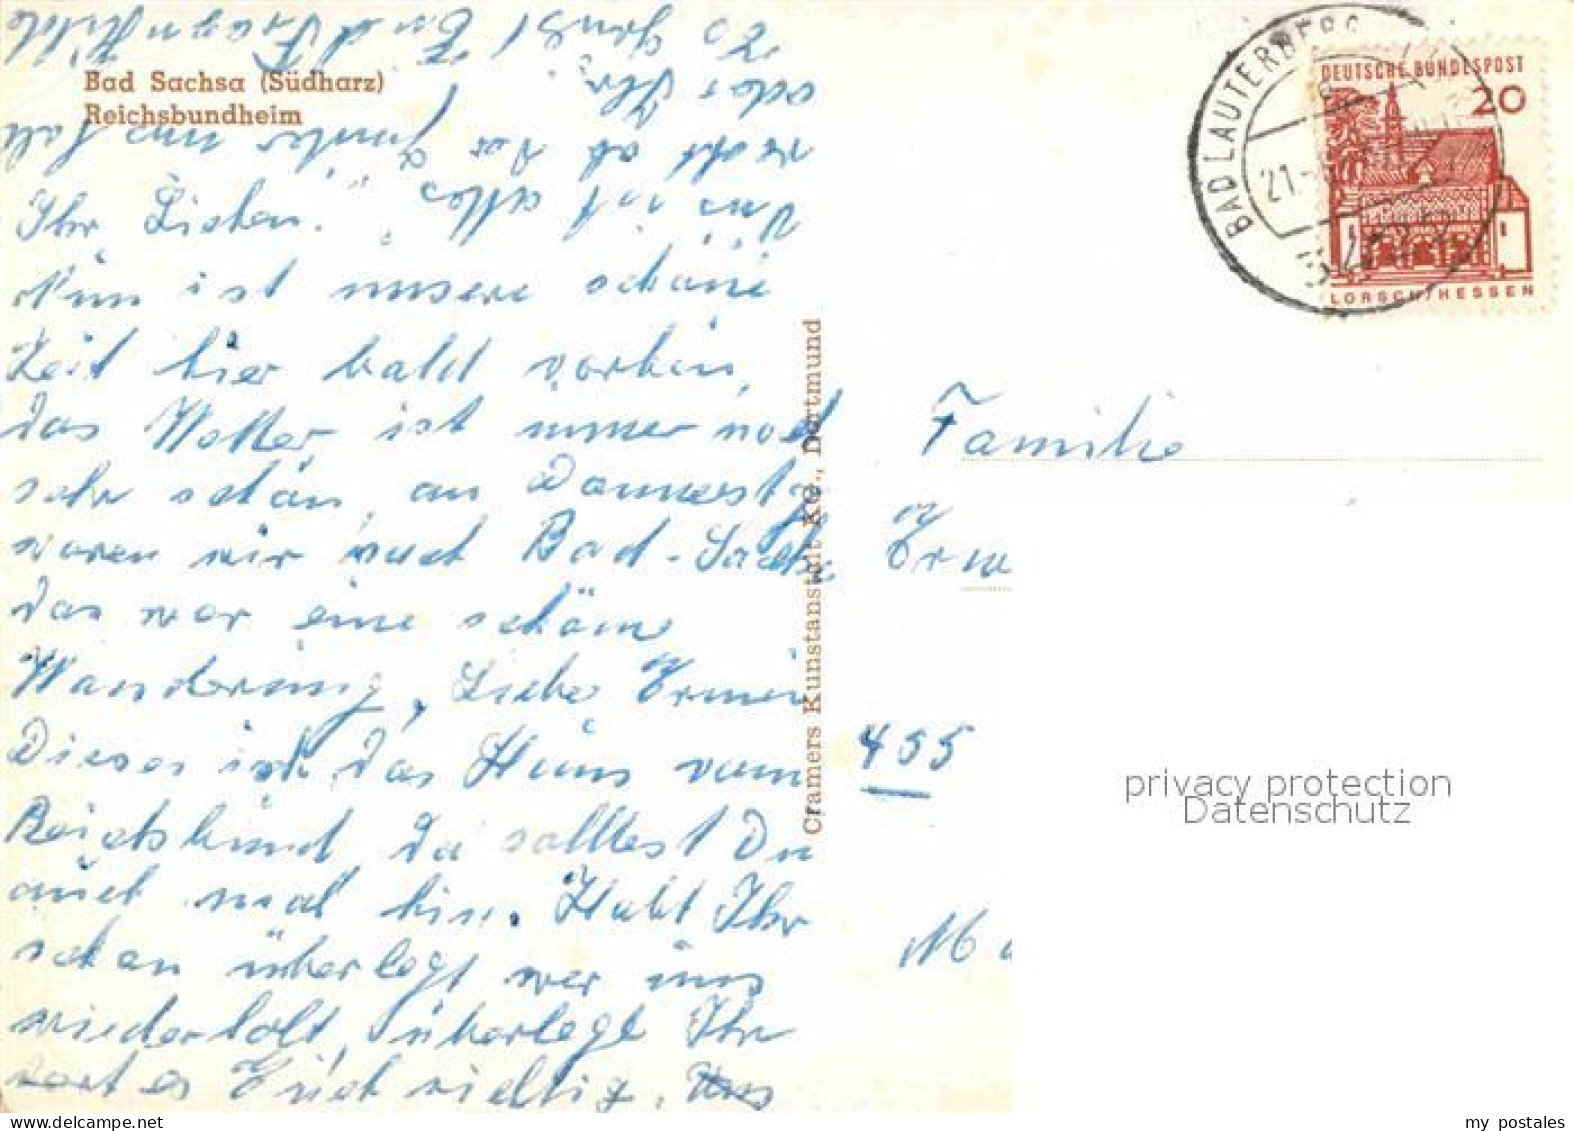 Bad Sachsa (Südharz)
Reichsbundheim
Ihr Lieben!
Nun ist unsere schöne
Zeit hier bald vorbei,
das Wetter ist immer noch
sehr schön, am Donnerstg
waren wir nach Bad-Sachsa
das war eine schöne
Wanderung, Liebe Ermin
Dieses ist das Haus vom
Reichsbund, da solltest Du
auch mal hin. Habt Ihr
schon überlegt wer uns
wiederholt, überlegt Ihr
es Euch richtig.
uns ist alles
recht ob Du
oder Ihr
Cramers Kunstanstalt KG., Dortmund
BAD LAUTERBERG
21
DEUTSCHE BUNDESPOST
20
LORSCH/HESSEN
Familie
Erm
455
privacy protection
Datenschutz
my postales